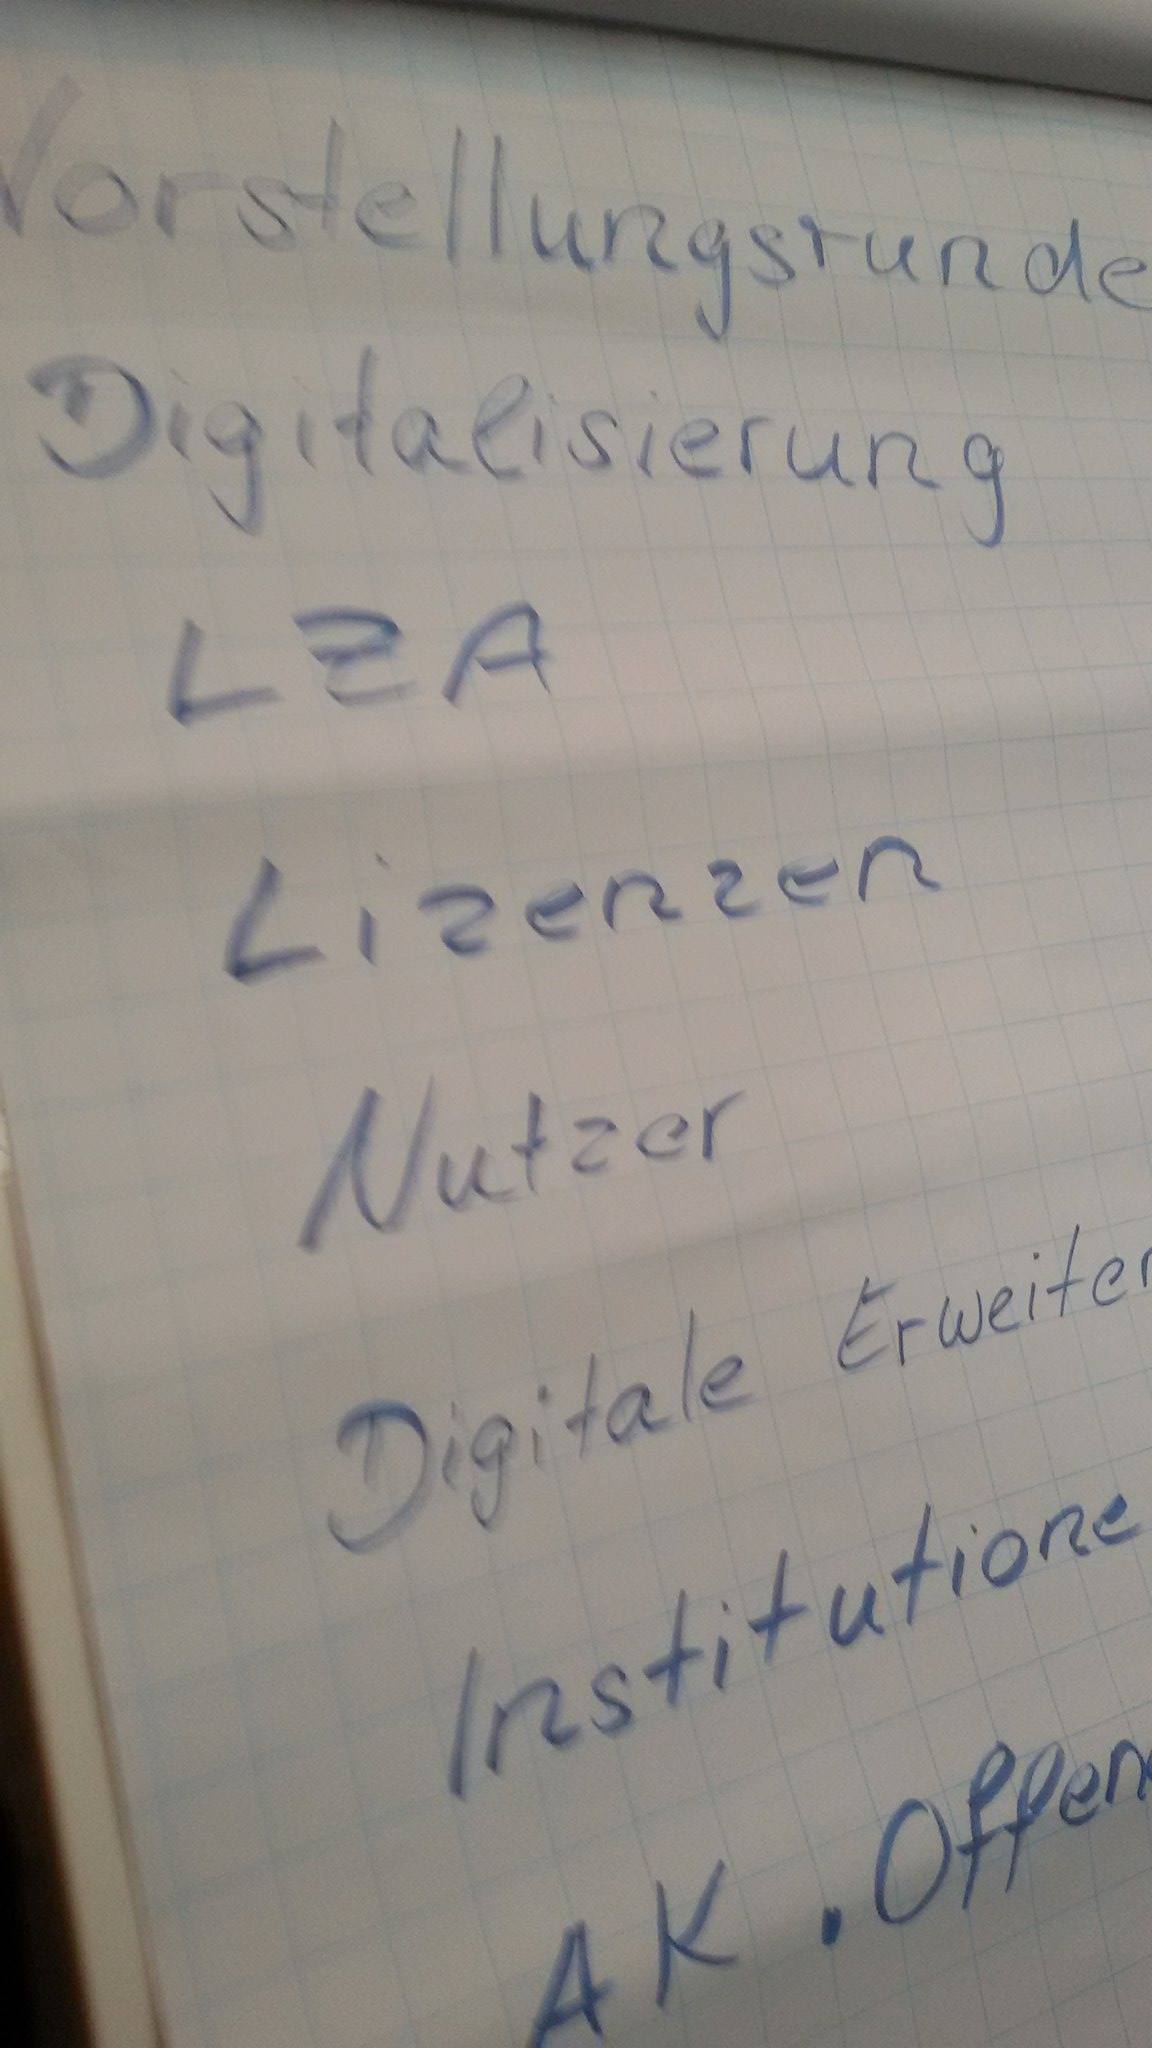 Vorstellungsrunde
Digitalisierung
LZA
Lizenzen
Nutzer
Digitale Erweiter
Institutione
AK . Offen